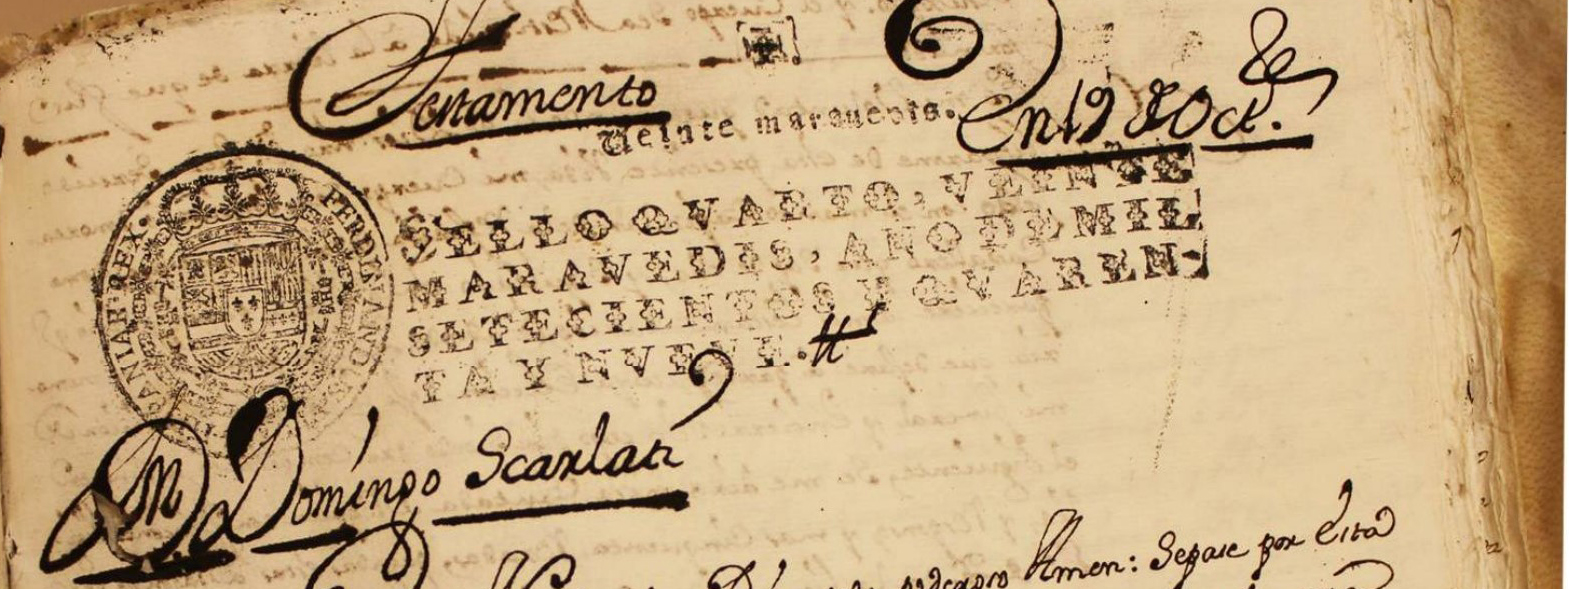 Testamento
Veinte marauedis.
En 19 de Oct.
SELLO QVARTO, VEINTE
MARAVEDIS, AÑO DE MIL
SETECIENTOS Y QVAREN-
TA Y NVEVE.
HISPANIAR REX. FERDINAND
Domingo Scarlati
Amen: Sepase por esta